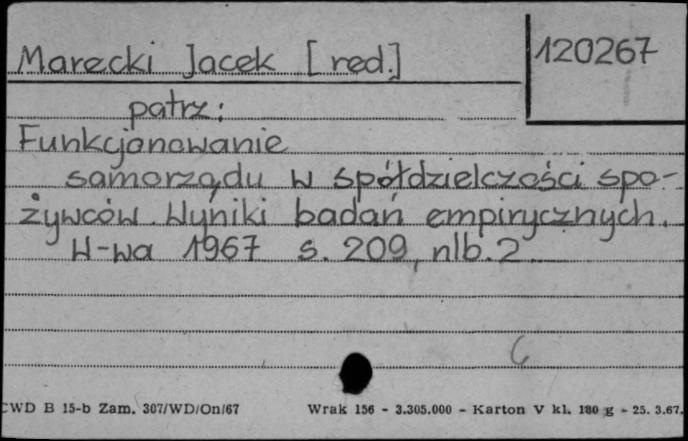 Marecki Jacek [red.]
120267
patrz:
Funkcjonowanie
samorządu w spółdzielczości spo-
żywców. Wyniki badań empirycznych.
W-wa 1967 s. 209, nlb. 2
6
CWD B 15-b Zam. 307/WD/On/67 Wrak 156 - 3.305.000 - Karton V kl. 180 g - 25. 3.67.